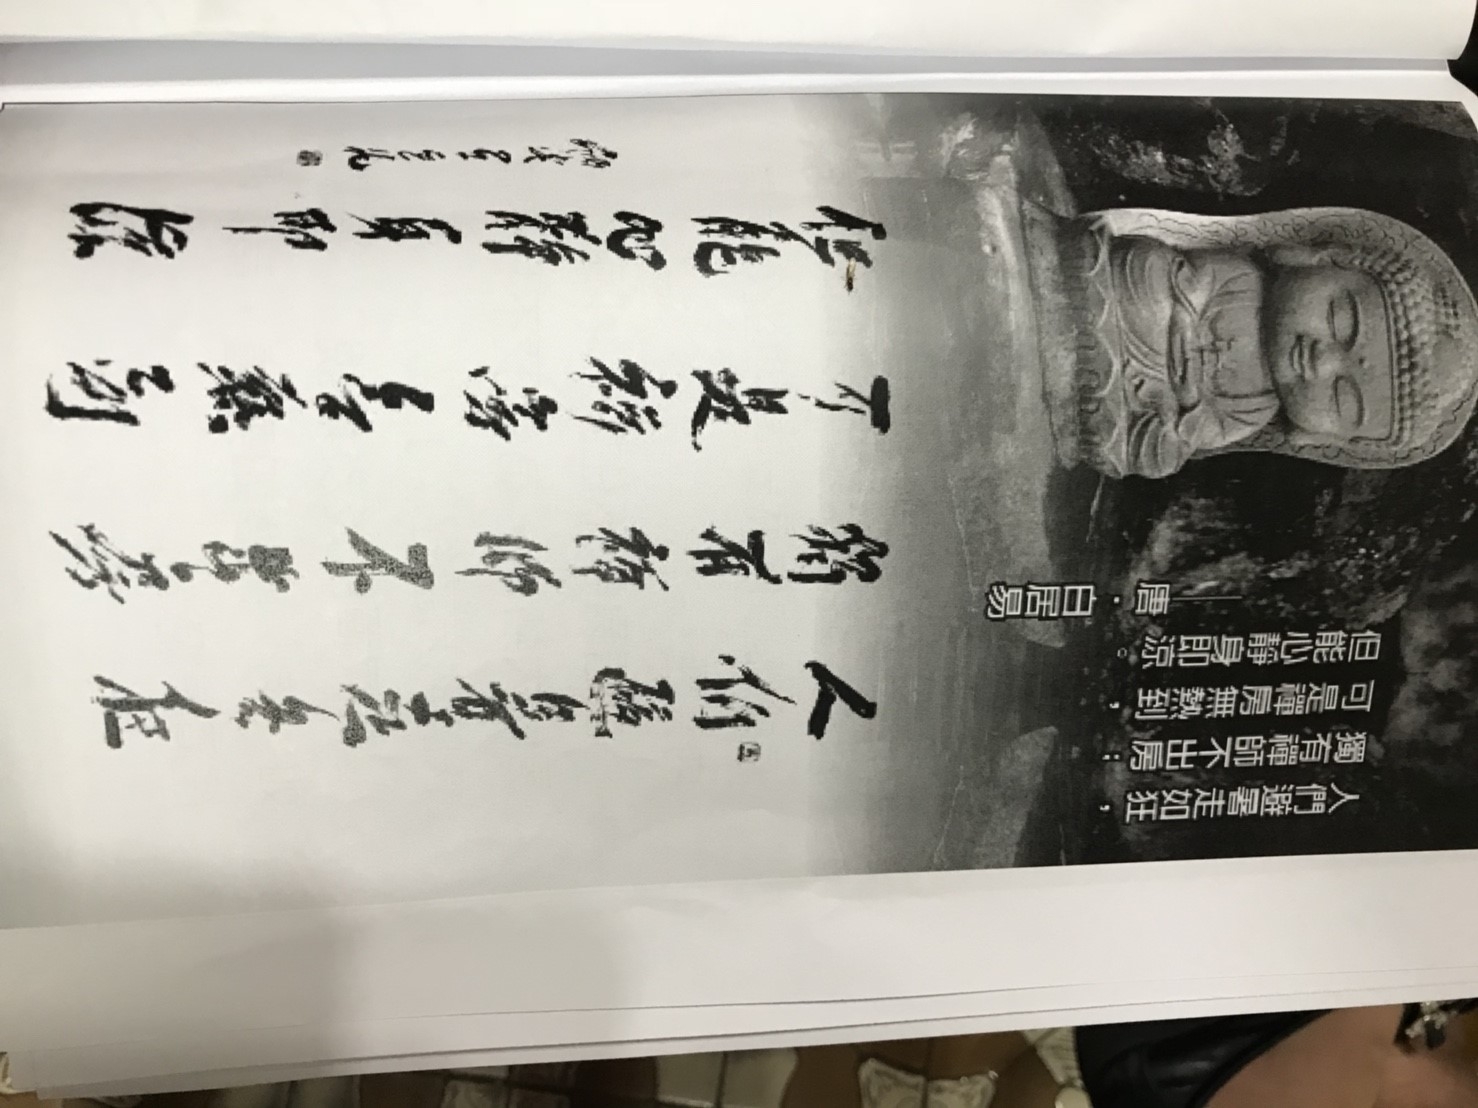 人們避暑走如狂，
獨有禪師不出房；
可是禪房無熱到，
但能心靜身即涼。
——唐．白居易
人們避暑走如狂
獨有禪師不出房
可是禪房無熱到
但能心靜身即涼